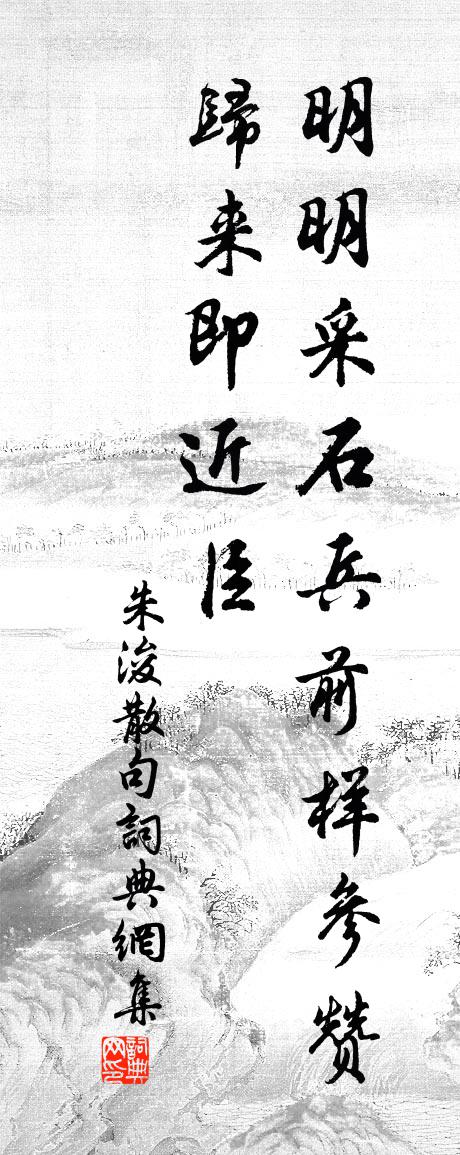 明明采石兵前样参赞
歸来即近臣
朱浚散句詞典網集
詞典网印